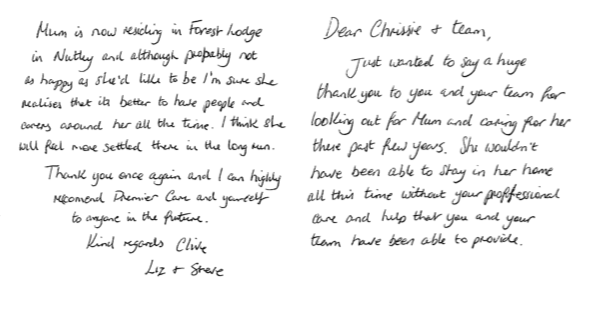 Dear Chrissie + team,
Just wanted to say a huge
thank you to you and your team for
looking out for Mum and caring for her
these past few years. She wouldn't
have been able to stay in her home
all this time without your proffessional
care and help that you and your
team have been able to provide.
Mum is now residing in Forest Lodge
in Nutley and although probably not
as happy as she'd like to be I'm sure she
realises that its better to have people and
carers around her all the time. I think she
will feel more settled there in the long run.
Thank you once again and I can highly
recomend Premier Care and yourself
to anyone in the future.
Kind regards Clive
Liz + Steve